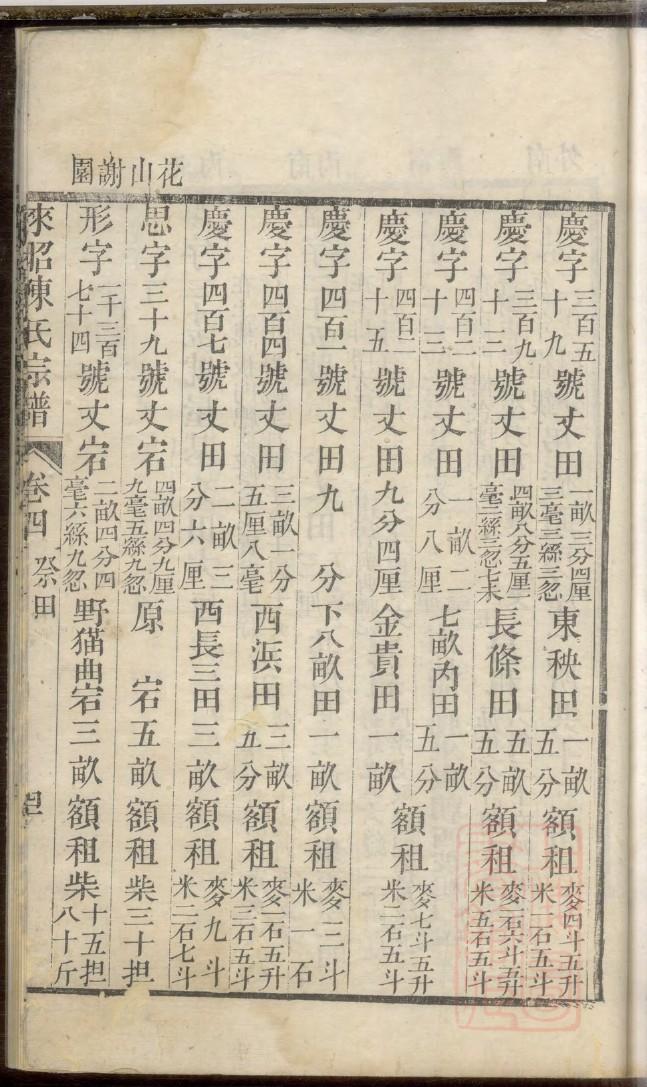 慶字三百五十九號丈田一畝三分四厘三毫三絲三忽東秧田一畝五分額租麥四斗五升米二石五斗
慶字三百九十三號丈田四畝八分五厘一毫二絲三忽七末長條田五畝五分額租麥一石六斗五升米五石五斗
慶字四百二十三號丈田一畝二分八厘七畝內田一畝五分
慶字四百二十五號丈田九分四厘金貴田一畝額租麥七斗五升米二石五斗
慶字四百一號丈田九分下八畝田一畝額租麥三斗米一石
慶字四百四號丈田三畝一分五厘八毫西浜田三畝五分額租麥一石五升米三石五斗
慶字四百七號丈田二畝三分六厘西長三田三畝額租麥九斗米二石七斗
花山謝園
思字三十九號丈宕四畝四分九厘九毫五絲九忽原宕五畝額租柴三十担
形字一千三百七十四號丈宕二畝四分四毫六絲九忽野猫曲宕三畝額租柴十五担八十斤
來昭陳氏宗譜 卷四 祭田